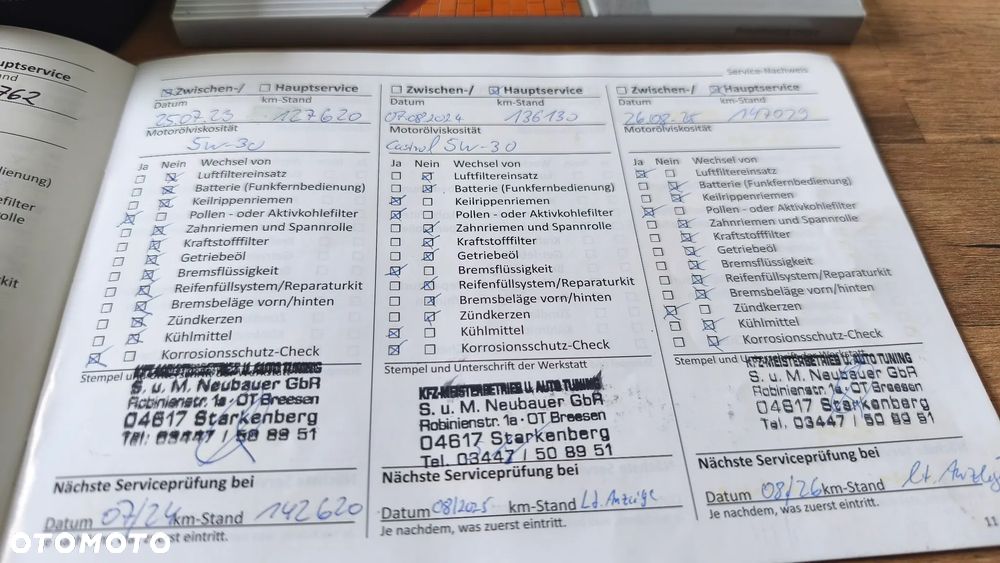 uptservice
762
Service-Nachweis
Zwischen-/ Hauptservice
Datum km-Stand
25.07.23 127620
Motorölviskosität
5W-30
Ja Nein Wechsel von
Luftfiltereinsatz
Batterie (Funkfernbedienung)
Keilrippenriemen
Pollen - oder Aktivkohlefilter
Zahnriemen und Spannrolle
Kraftstofffilter
Getriebeöl
Bremsflüssigkeit
Reifenfüllsystem/Reparaturkit
Bremsbeläge vorn/hinten
Zündkerzen
Kühlmittel
Korrosionsschutz-Check
Stempel
KFZ-MEISTERBETRIEB U. AUTO TUNING
S. u. M. Neubauer GbR
Robinienstr. 1a · OT Breesen
04617 Starkenberg
Tel. 03447 / 50 89 51
Nächste Serviceprüfung bei
Datum 07/24 km-Stand 142620
Je nachdem, was zuerst eintritt.
Zwischen-/ Hauptservice
Datum km-Stand
07.08.2024 136130
Motorölviskosität
Castrol 5W-30
Ja Nein Wechsel von
Luftfiltereinsatz
Batterie (Funkfernbedienung)
Keilrippenriemen
Pollen - oder Aktivkohlefilter
Zahnriemen und Spannrolle
Kraftstofffilter
Getriebeöl
Bremsflüssigkeit
Reifenfüllsystem/Reparaturkit
Bremsbeläge vorn/hinten
Zündkerzen
Kühlmittel
Korrosionsschutz-Check
Stempel und Unterschrift der Werkstatt
KFZ-MEISTERBETRIEB U. AUTO TUNING
S. u. M. Neubauer GbR
Robinienstr. 1a · OT Breesen
04617 Starkenberg
Tel. 03447 / 50 89 51
Nächste Serviceprüfung bei
Datum 08/2025 km-Stand Lt. Anzeige
Je nachdem, was zuerst eintritt.
Zwischen-/ Hauptservice
Datum km-Stand
26.08.25 147029
Motorölviskosität
Ja Nein Wechsel von
Luftfiltereinsatz
Batterie (Funkfernbedienung)
Keilrippenriemen
Pollen - oder Aktivkohlefilter
Zahnriemen und Spannrolle
Kraftstofffilter
Getriebeöl
Bremsflüssigkeit
Reifenfüllsystem/Reparaturkit
Bremsbeläge vorn/hinten
Zündkerzen
Kühlmittel
Korrosionsschutz-Check
Stempel und Unterschrift der Werkstatt
KFZ-MEISTERBETRIEB U. AUTO TUNING
S. u. M. Neubauer GbR
Robinienstr. 1a · OT Breesen
04617 Starkenberg
Tel. 03447 / 50 89 51
Nächste Serviceprüfung bei
Datum 08/26 km-Stand lt. Anzeig
Je nachdem, was zuerst eintritt.
11
OTOMOTO